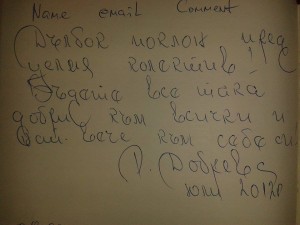 Name email Comment
Дълбок поклон пред
целия колектив!
Бъдете все така
добри към всички и
най-вече към себе си
Р. Добрева
юни 2012г